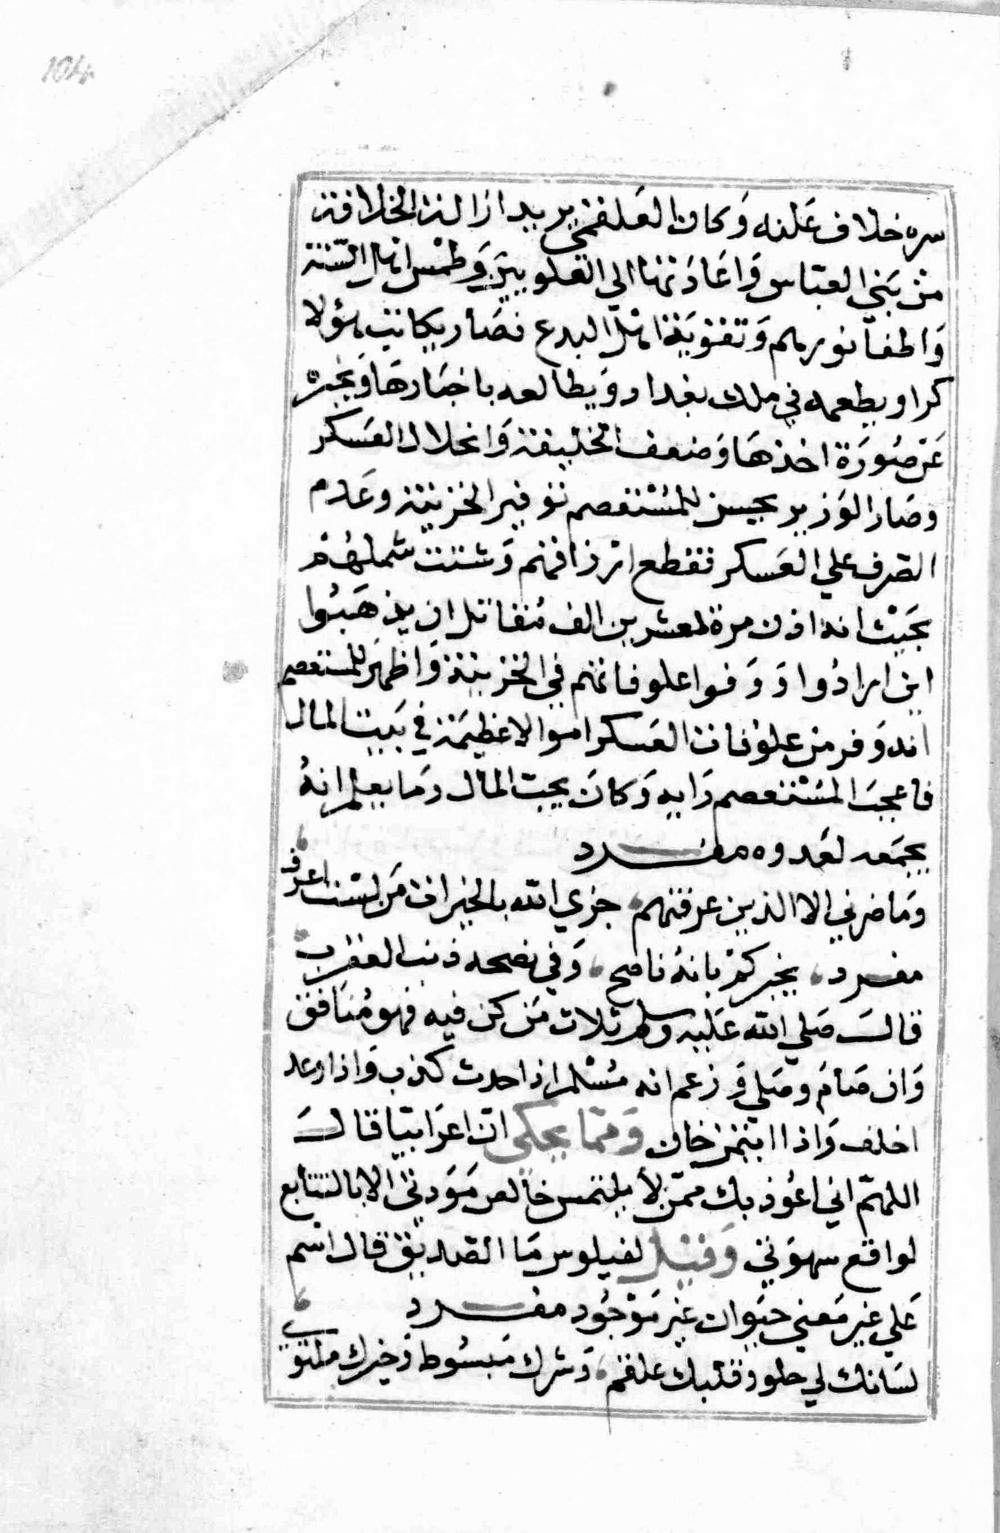 104
سره خلاف علنه وكان العلقمي يريد ازالة الخلافة
من بني العباس واعادتها الي العلويين وطمس اثار السنة
واطفا نورهم وتقوية اهل البدع فصار يكاتب هؤلا
كرا ويطعمه في ملك بغداد ويطالعه باخبارها ويخبره
عن صورة اخذها وضعف الخليفة وانحلال العسكر
وصار الوزير يحسن للمستعصم توفير الخزينة وعدم
الصرف علي العسكر فقطع ارزاقهم وشتت شملهم
بحيث انه اذن مرة لعشرين الف مقاتل ان يذهبوا
اين ارادوا ووفر علوفاتهم في الخزينة واظهر للمستعصم
انه وفر من علوفات العسكر اموالا عظيمة في بيت المال
فاعجب المستعصم رايه وكان يحب المال وما يعلم انه
يجمعه لعدوه مفرد
وما ضرني الا الذين عرفتهم جزي الله بالخيرات من لست اعرف
مفرد يخبركم بانه ناصح وفي نصحه ذنب العقرب
قال صلي الله عليه وسلم ثلاث من كن فيه فهو منافق
وان صام وصلي وزعم انه مسلم اذا حدث كذب واذا وعد
اخلف واذا ايتمن خان ومما يحكي ان اعرابيا قال
اللهم اني اعوذ بك ممن لا يلتمس خالص مودتي الا بالتتابع
لواقع سهوتي وقيل لفيلوس ما الصديق قال اسم
علي غير معني حيوان غير موجود مفرد
لسانك لي حلو وقلبك علقم وشرك مبسوط وخيرك ملتوي